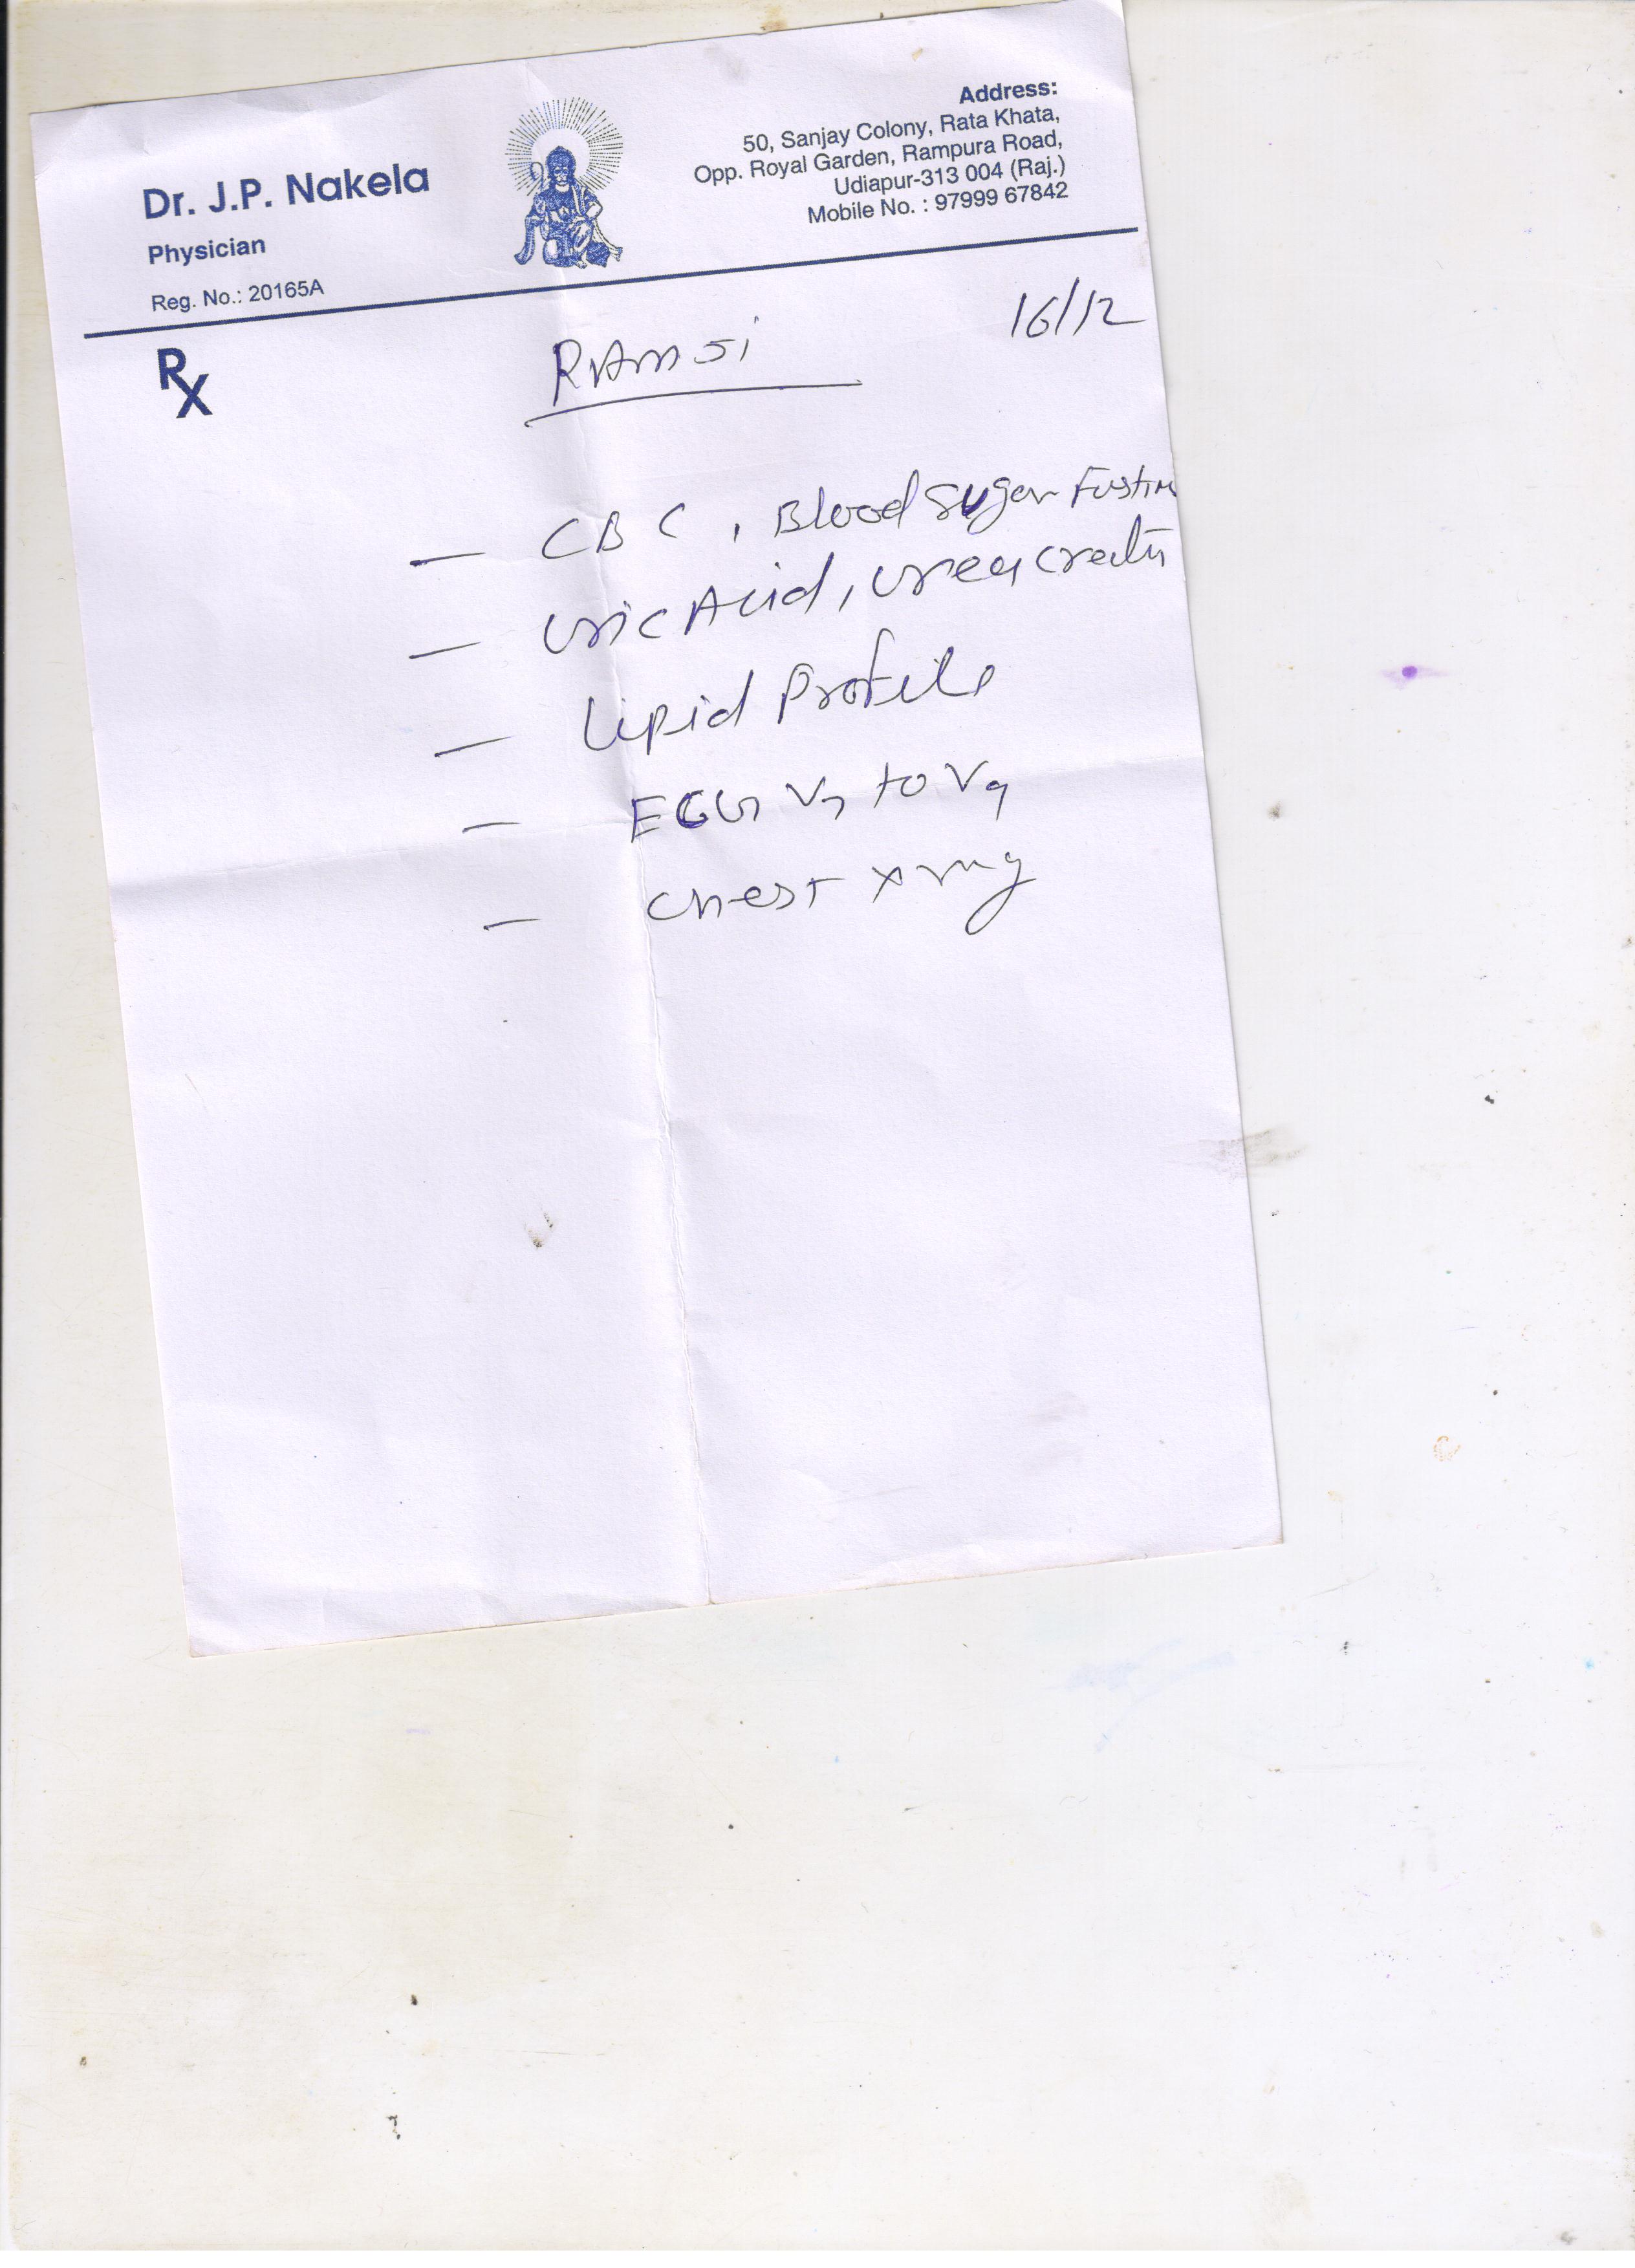 Address:
50, Sanjay Colony, Rata Khata,
Opp. Royal Garden, Rampura Road,
Udiapur-313 004 (Raj.)
Mobile No. : 97999 67842
Dr. J.P. Nakela
Physician
Reg. No.: 20165A
Rx
16/12
— CBC, Blood Sugar
— Uric Acid, Urea
— Lipid Profile
— ECG V7 to V9
— Chest xray